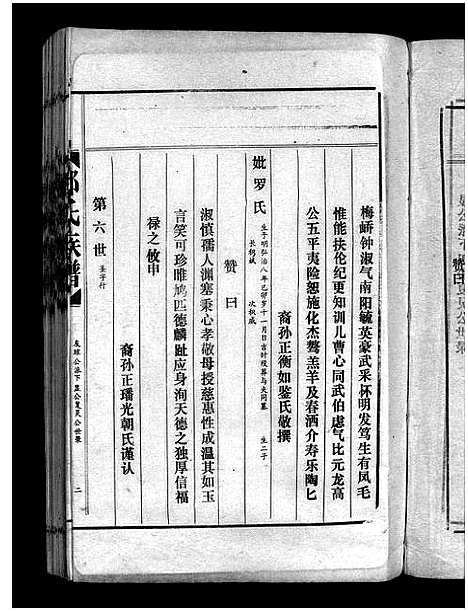 梅峤钟淑气南阳毓英豪武采杯明发笃生有凤毛
惟能扶伦纪更知训儿曹心同武伯虑气比元龙高
公五平夷险恕施化杰骜羔羊及春酒介寿乐陶匕
裔孙正衡如鉴氏敬撰
妣罗氏 生于明弘治八年乙卯岁十一月日吉时殁葬与夫同墓 生二子
长 斌 次权威
赞曰
淑慎孺人渊塞秉心孝敬母授慈惠性成温其如玉
言笑可珍唯鸠匹德麟趾应身洵天德之独厚信福
禄之攸申
裔孙正璠光朝氏谨认
第六世 圣字行
氏族谱
二